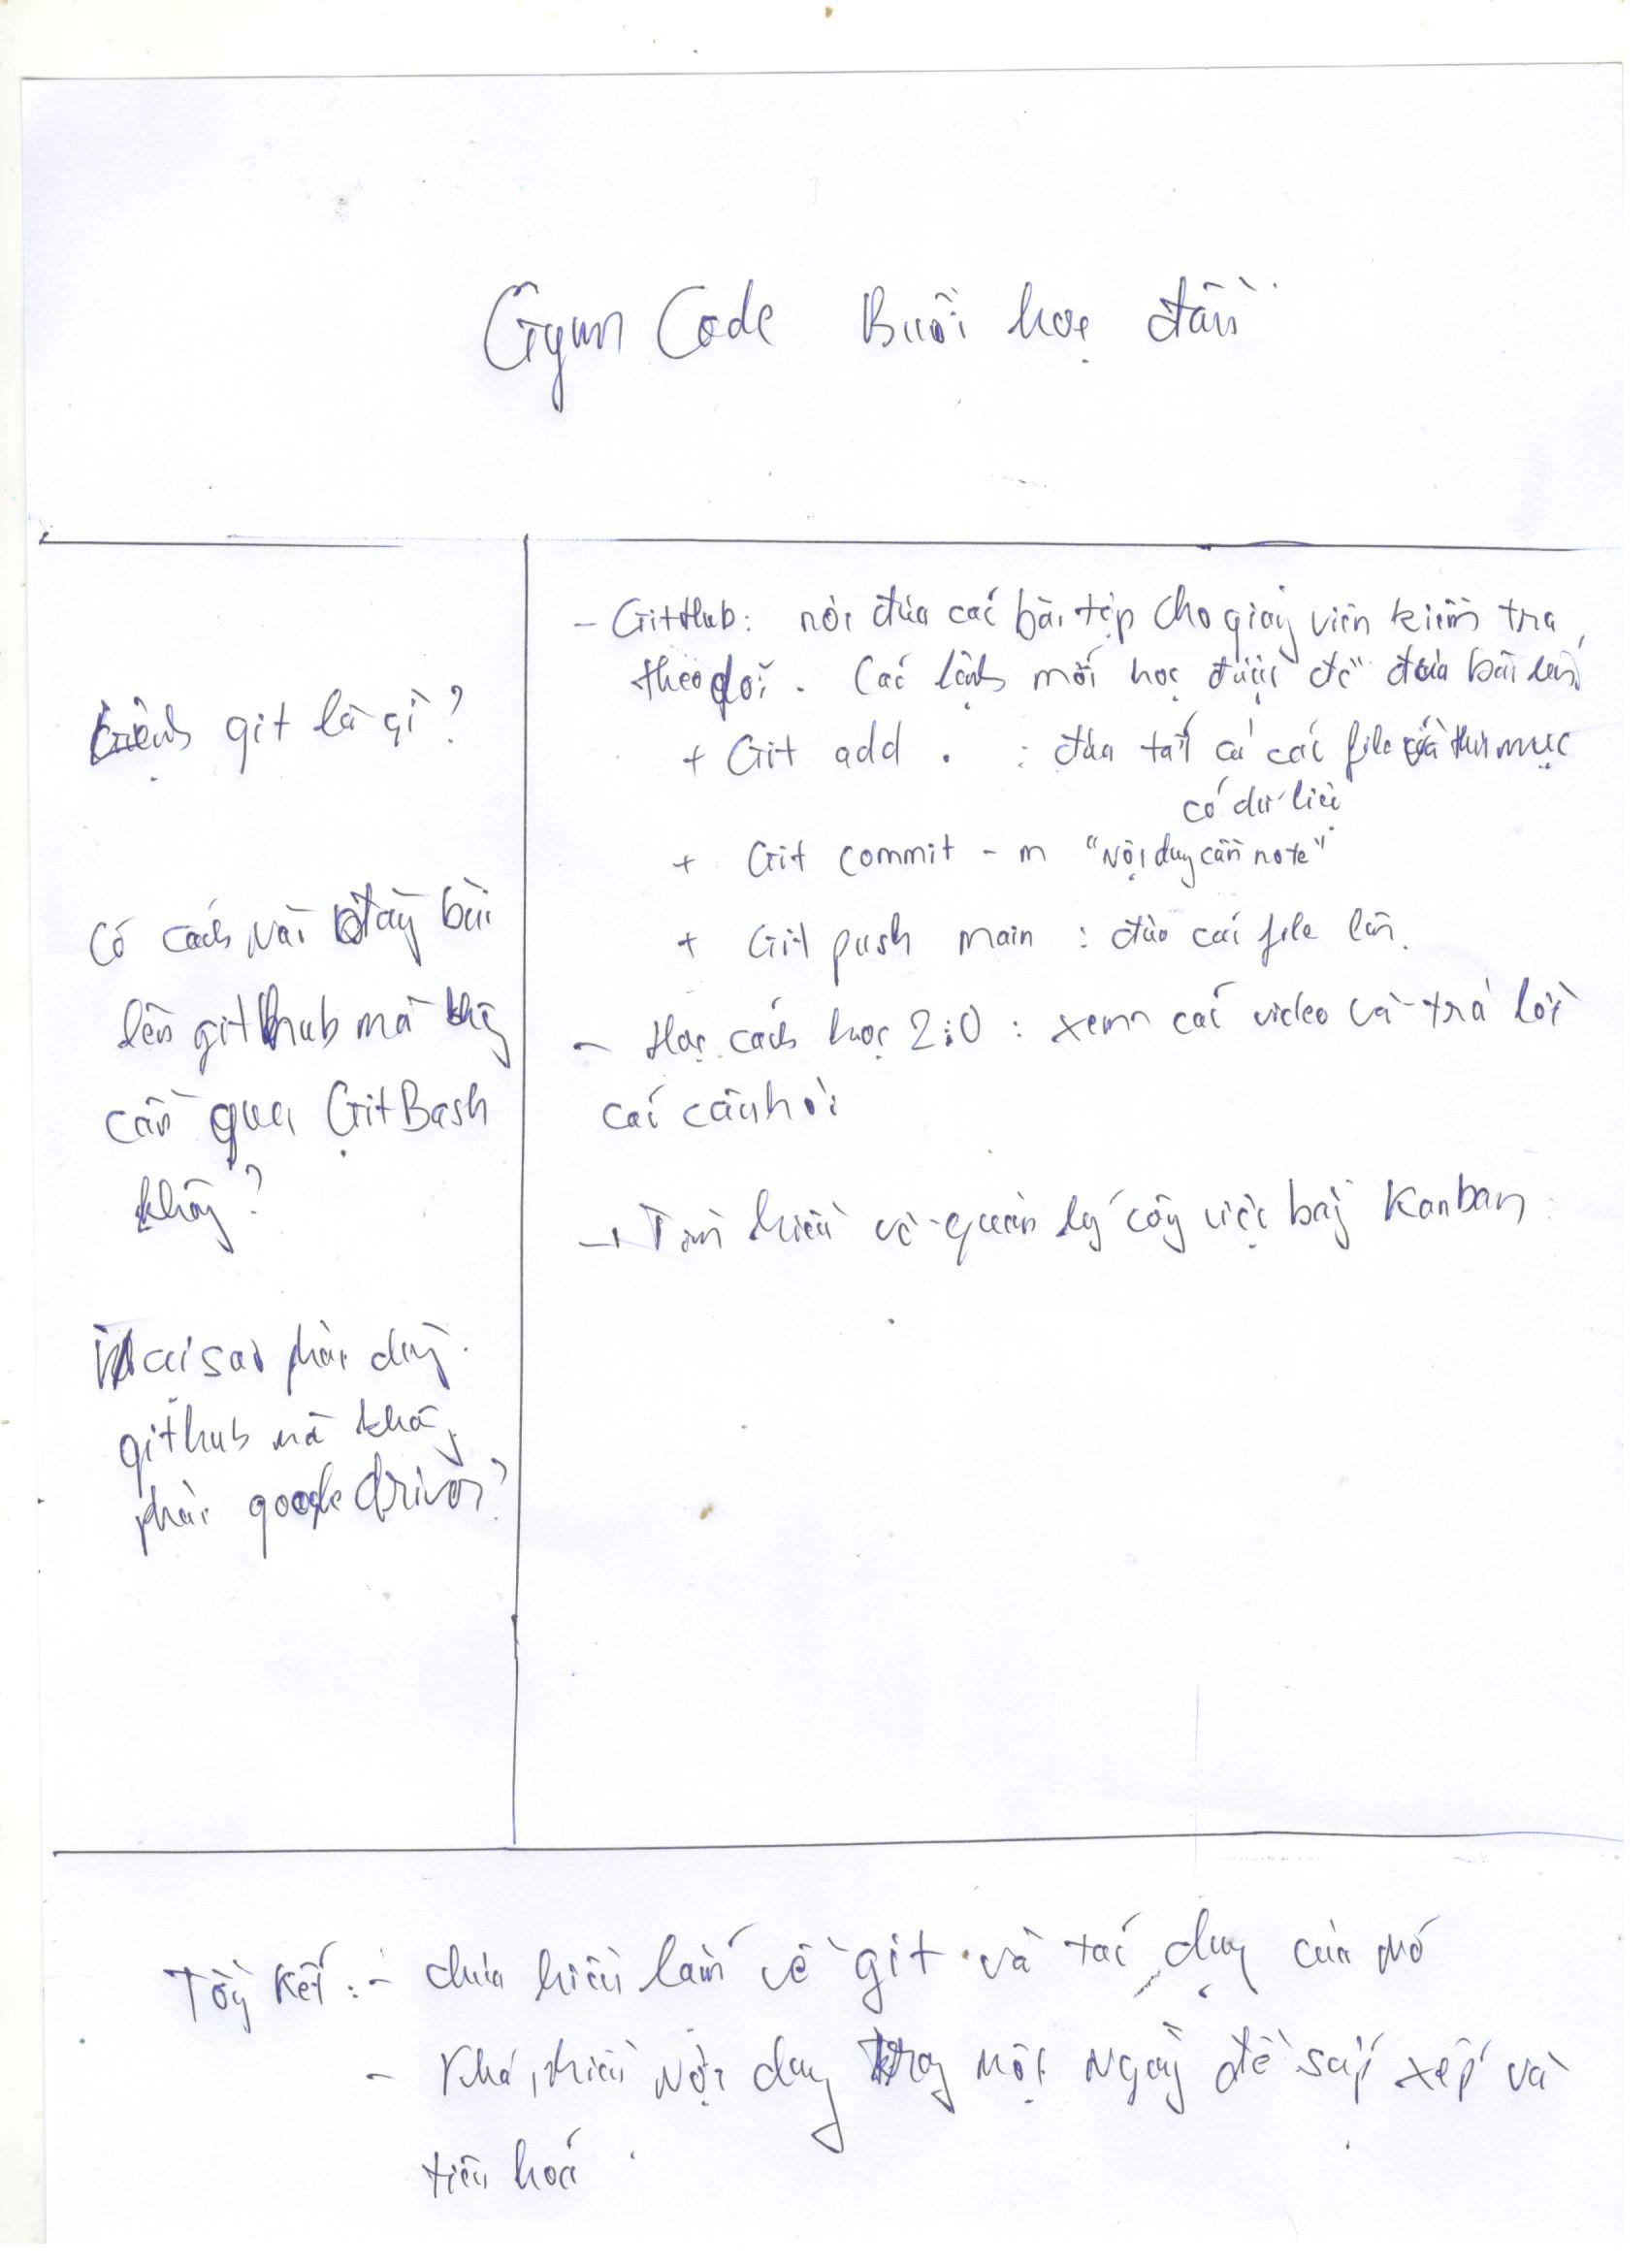 Gym Code Buổi học đầu
Lệnh git là gì?
Có cách nào đẩy bài
lên github mà không
cần qua GitBash
không?
Tại sao phải dùng
github mà không
phải google driver?
- GitHub: nơi đưa các bài tập cho giảng viên kiểm tra,
theo dõi. Các lệnh mới học được để đưa bài lên
+ Git add . : đưa tất cả các file của thư mục
có dữ liệu
+ Git commit - m "Nội dung cần note"
+ Git push main : đưa các file lên.
- Học cách học 2.0 : xem các video và trả lời
các câu hỏi
- Tìm hiểu về quản lý công việc bằng Kanban
Tổng kết: - chưa hiểu lắm về git và tác dụng của nó
- Khá nhiều nội dung trong một ngày để sắp xếp và
tiêu hoá